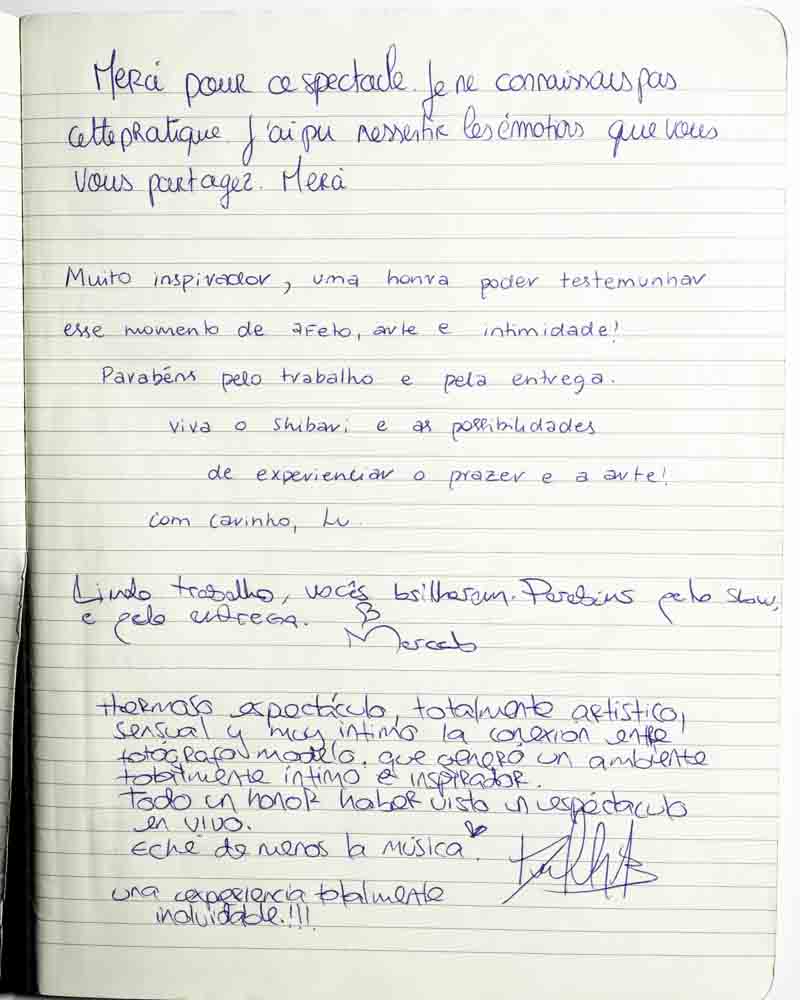 Merci pour ce spectacle. Je ne connaissais pas
cette pratique. J'ai pu ressentir les émotions que vous
vous partagez. Merci
Muito inspirador, uma honra poder testemunhar
esse momento de afeto, arte e intimidade!
Parabéns pelo trabalho e pela entrega.
viva o Shibari e as possibilidades
de experienciar o prazer e a arte!
com carinho, Lu.
Lindo trabalho, vocês brilharam. Parabéns pelo show,
e pela entrega.
Marcelo
Hermoso espectáculo, totalmente artistico,
sensual y muy íntimo la conexion entre
fotógrafo y modelo, que generó un ambiente
totalmente íntimo e inspirador.
Todo un honor haber visto un espectáculo
en vivo.
Eché de menos la música.
una experiencia totalmente
inolvidable!!!